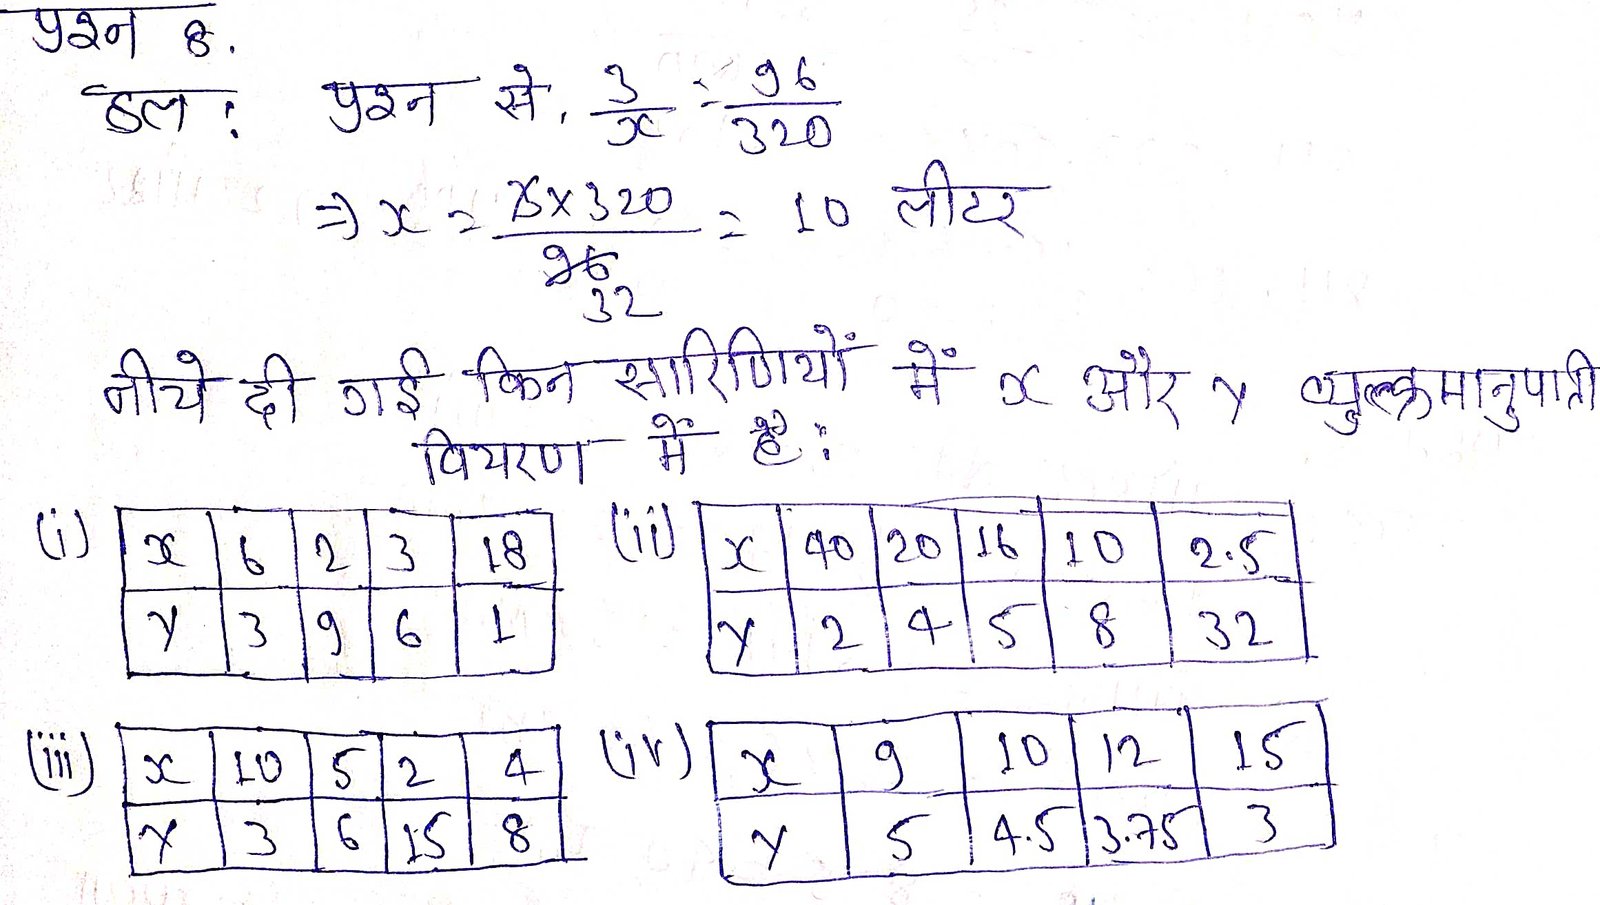 प्रश्न 8.
हल: प्रश्न से, 3/x = 96/320
⇒ x = 3×320/96 32 = 10 लीटर
नीचे दी गई किन सारिणियों में x और y व्युत्क्रमानुपाती
विचरण में है:
(i) x 6 2 3 18 (ii) x 40 20 16 10 2.5
y 3 9 6 1 y 2 4 5 8 32
(iii) x 10 5 2 4 (iv) x 9 10 12 15
y 3 6 15 8 y 5 4.5 3.75 3